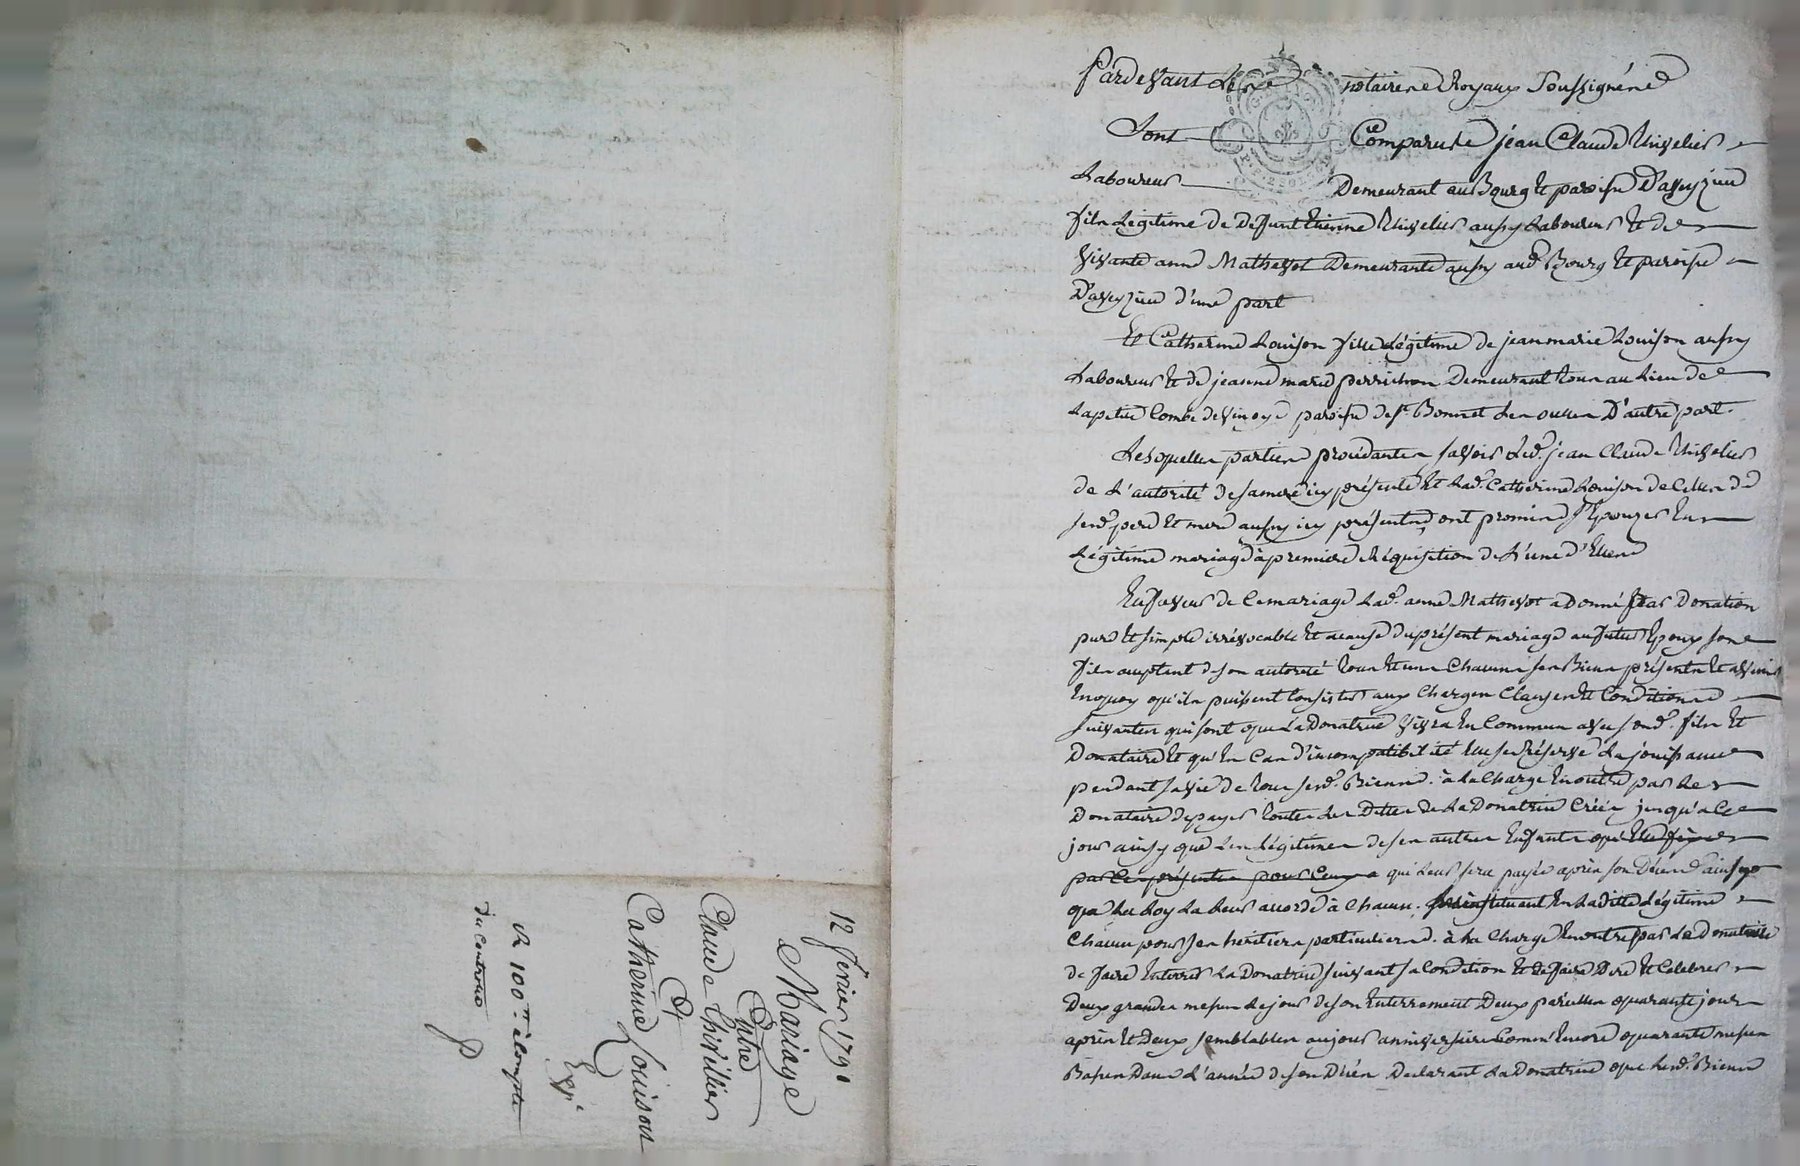 Pardevant Le notaire Royaux Soussigné
Sont Comparu jean Claude Thivelier
Laboureur Demeurant au Bourg et paroisse D'aveyzieu
fils Légitime de Deffunt Etienne Thivelier aussy Laboureur Et de
Vivante anne Mathevot Demeurante aussy aud. Bourg Et paroisse
D'aveyzieu d'une part
Et Catherine Louison fille Légitime de jeanmarie Louison aussy
Laboureur Et de jeanne marie perrichon Demeurant tous au Lieu de
Lapetite Combe paroisse de St. Bonnet Les oulles D'autre part.
Lesquelles parties procédantes savoir Led. jean Claude Thivelier
de L'autorité de sa mere icy présente Et Lad. Catherine Louison de Celles de
sesd. pere Et mere aussy icy présents ont promis S'Epouzer En
Légitime mariage à premiere Réquisition de L'une d'Elles
En faveur de Ce mariage Lad. anne Mathevot a Donné par Donation
pure Et simple irrévocable Et a cause du présent mariage au futur Epoux son
fils acceptant de son autorité tous Et uns Chacuns ses Biens présents Et avenir
Enquoy qu'ils puissent Consister aux Charges Clauses Et Conditions
suivantes qui sont que La Donatrice Vivra En Commun avec sond. fils Et
Donataire Et qu'En Cas d'incompatibilité Elle se Réserve La jouissance
pendant sa vie de tous sesd. Biens. à La Charge En outre par Le
Donataire de payer toutes Les Dettes de La Donatrice Créées jusqu'a Ce
jour ainsy que Les Légitimes de ses autres Enfants que Elle fixe
par Ces présentes pour qui Leur sera payée après son Décès ainsy
que La Loy La Leur accorde à Chacun. Les instituant En Laditte Légitime
Chacun pour ses héritiers particuliers. à La Charge En outre par Le Donataire
de faire Enterrer La Donatrice suivant sa Condition Et de faire Dire Et Celebrer
Deux grandes messes Le jour de son Enterrement Deux pareilles quarante jours
après Et Deux semblables au jour anniversaire Comm' Encore quarante messes
Basses Dans L'année de son Décès Declarant La Donatrice que sesd. Biens
12 fevrier 1790
Mariage
Entre
Claude Thivélier
Et
Catherine Louison
Expé
R 100 ₶ àCompte
du Controlle